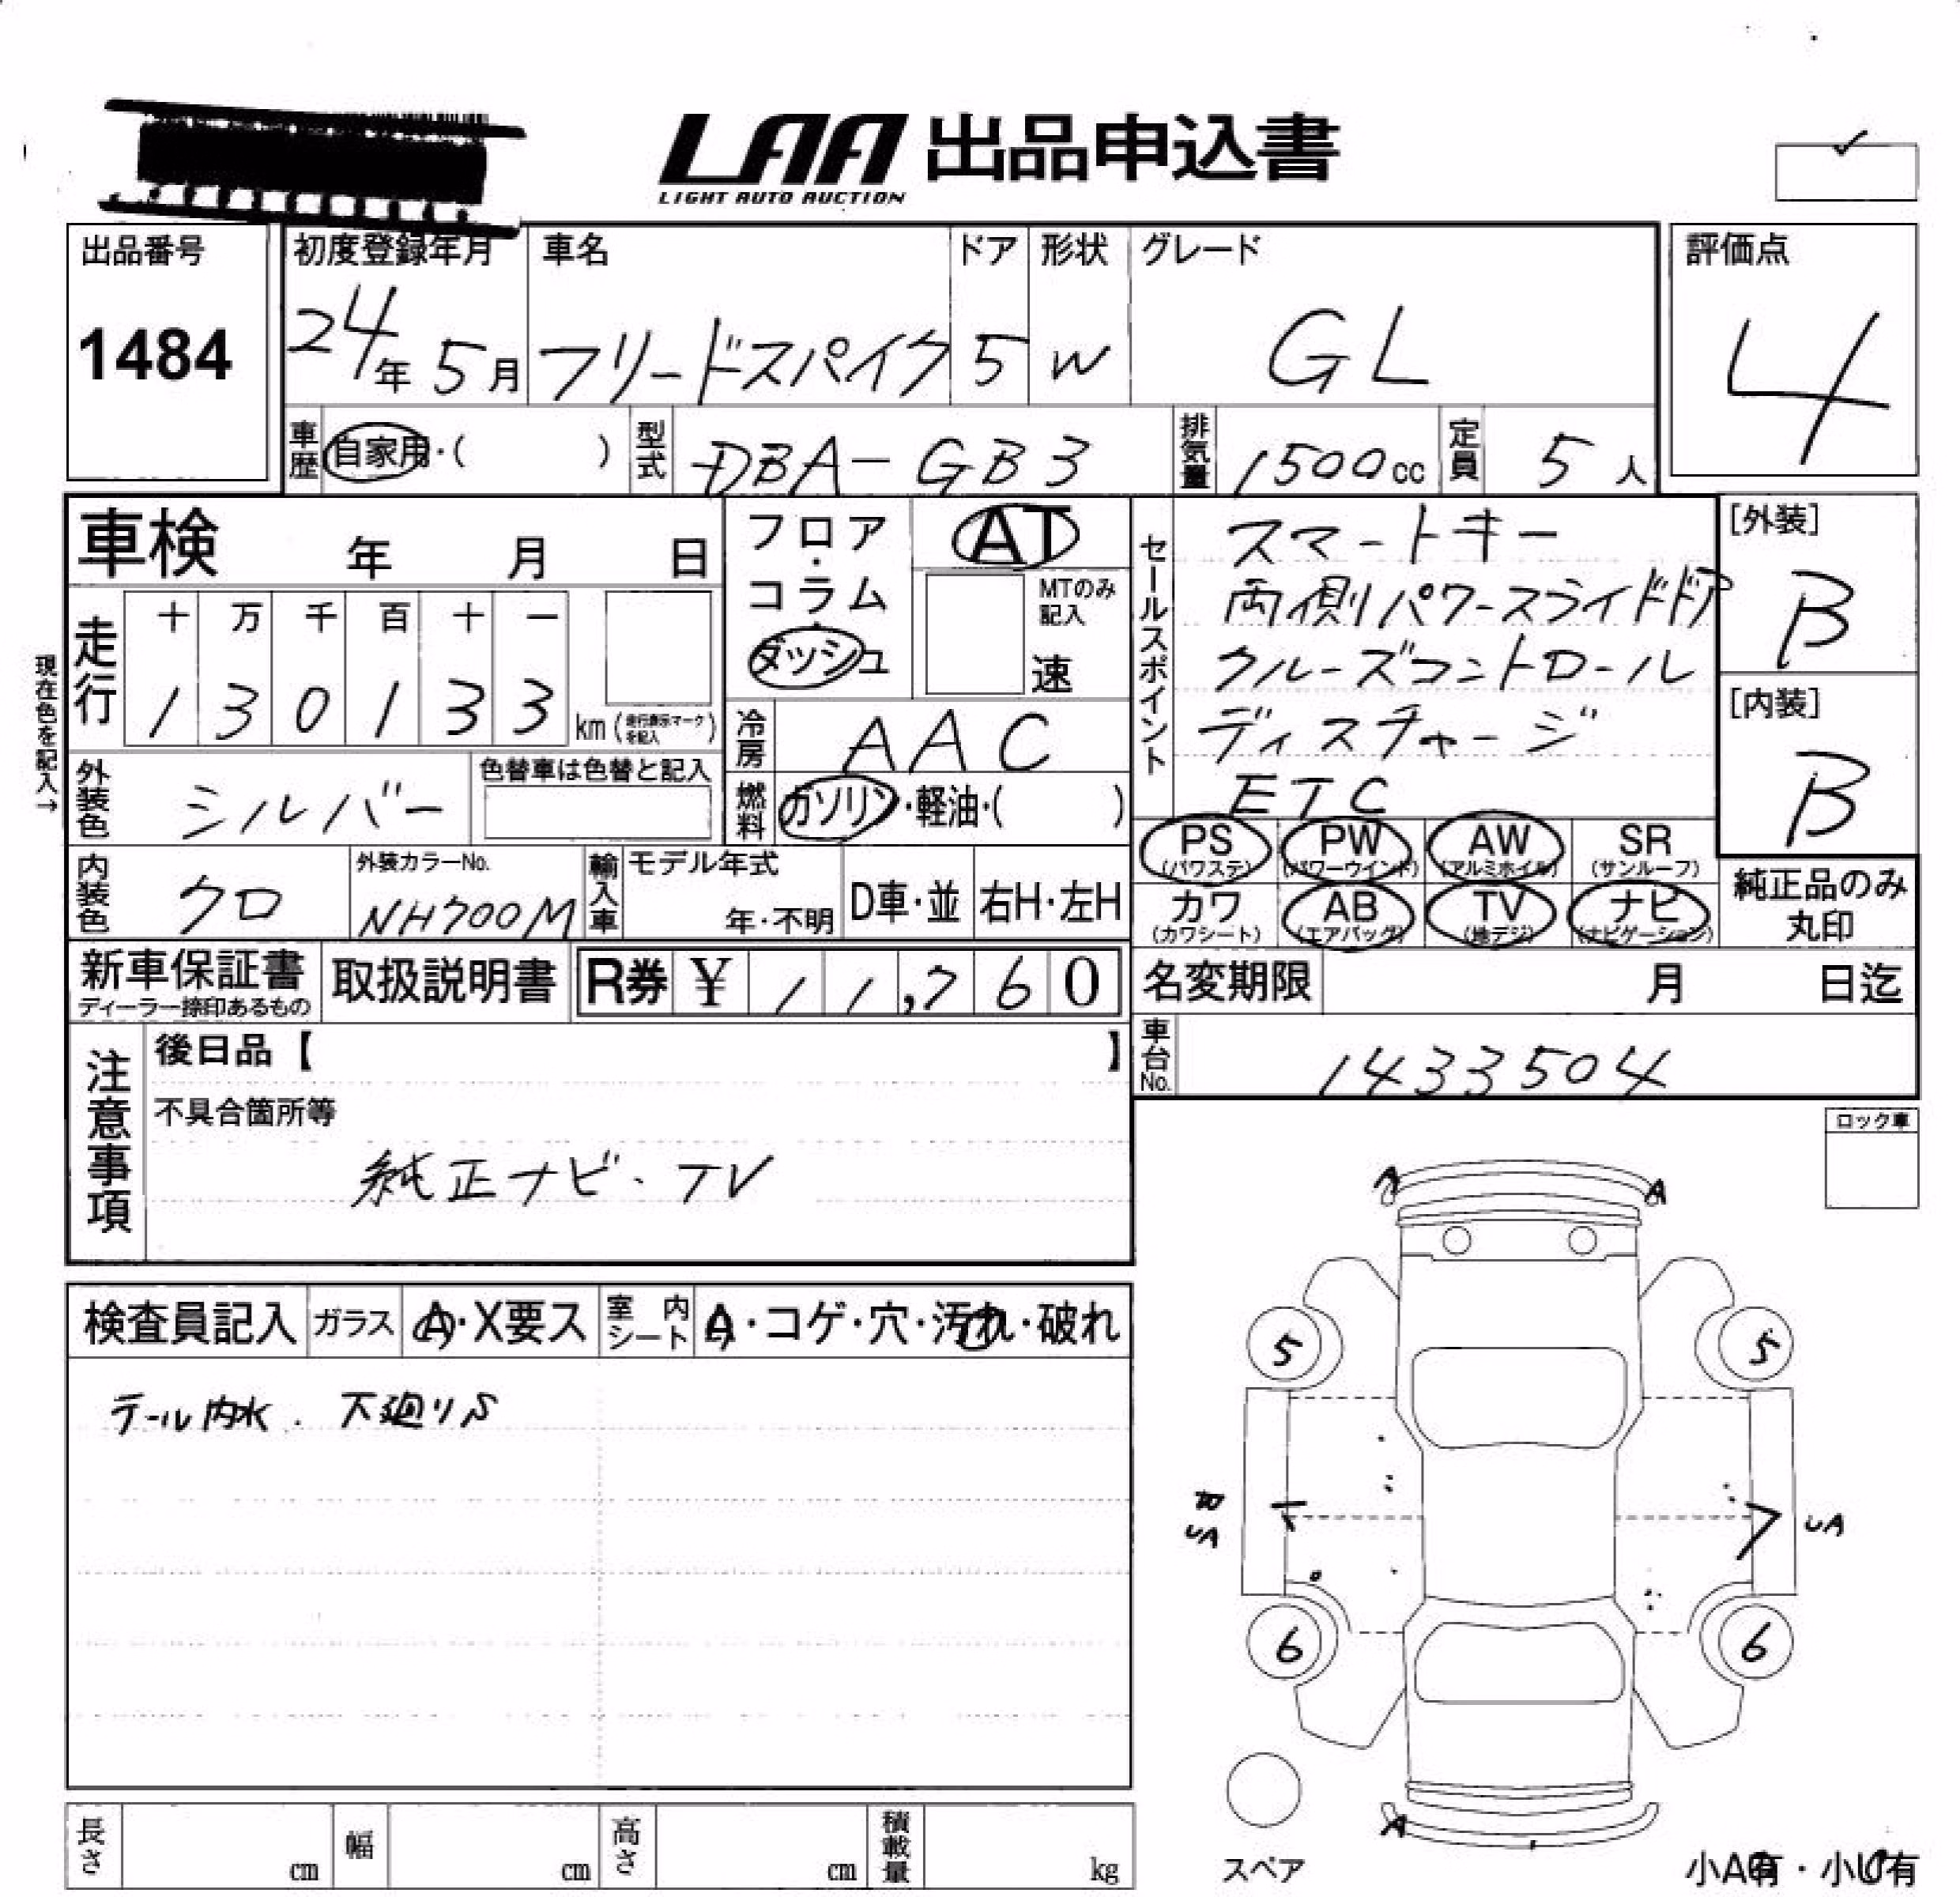 LAA 出品申込書
LIGHT AUTO AUCTION
出品番号
1484
初度登録年月
24年 5月
車名
フリードスパイク
ドア
5
形状
W
グレード
GL
評価点
4
車歴 自家用・( )
型式 DBA-GB3
排気量 1500cc
定員 5人
車検 年 月 日
フロア・コラム ダッシュ
AT
MTのみ記入
速
セールスポイント
スマートキー
両側パワースライドドア
クルーズコントロール
ディスチャージ
ETC
[外装]
B
[内装]
B
現在色を記入→
走行
十 万 千 百 十 一
1 3 0 1 3 3 km (走行表示マークを記入)
冷房 AAC
外装色 シルバー
色替車は色替と記入
燃料 ガソリン・軽油・( )
PS (パワステ) PW (パワーウインド) AW (アルミホイル) SR (サンルーフ)
カワ (カワシート) AB (エアバッグ) TV (地デジ) ナビ (ナビゲーション)
純正品のみ丸印
内装色 クロ
外装カラーNo.
NH700M
輸入車
モデル年式
年・不明
D車・並
右H・左H
新車保証書
ディーラー捺印あるもの
取扱説明書
R券 ¥ 11,760
名変期限 月 日迄
車台No. 1433504
注意事項
後日品【 】
不具合箇所等
純正ナビ・TV
ロック車
検査員記入 ガラス A・X要ス 室内シート A・コゲ・穴・汚れ・破れ
テール内水. 下廻りS
A A
5 5
UA
UA
6 6
A
スペア
長さ cm 幅 cm 高さ cm 積載量 kg
小A有・小U有